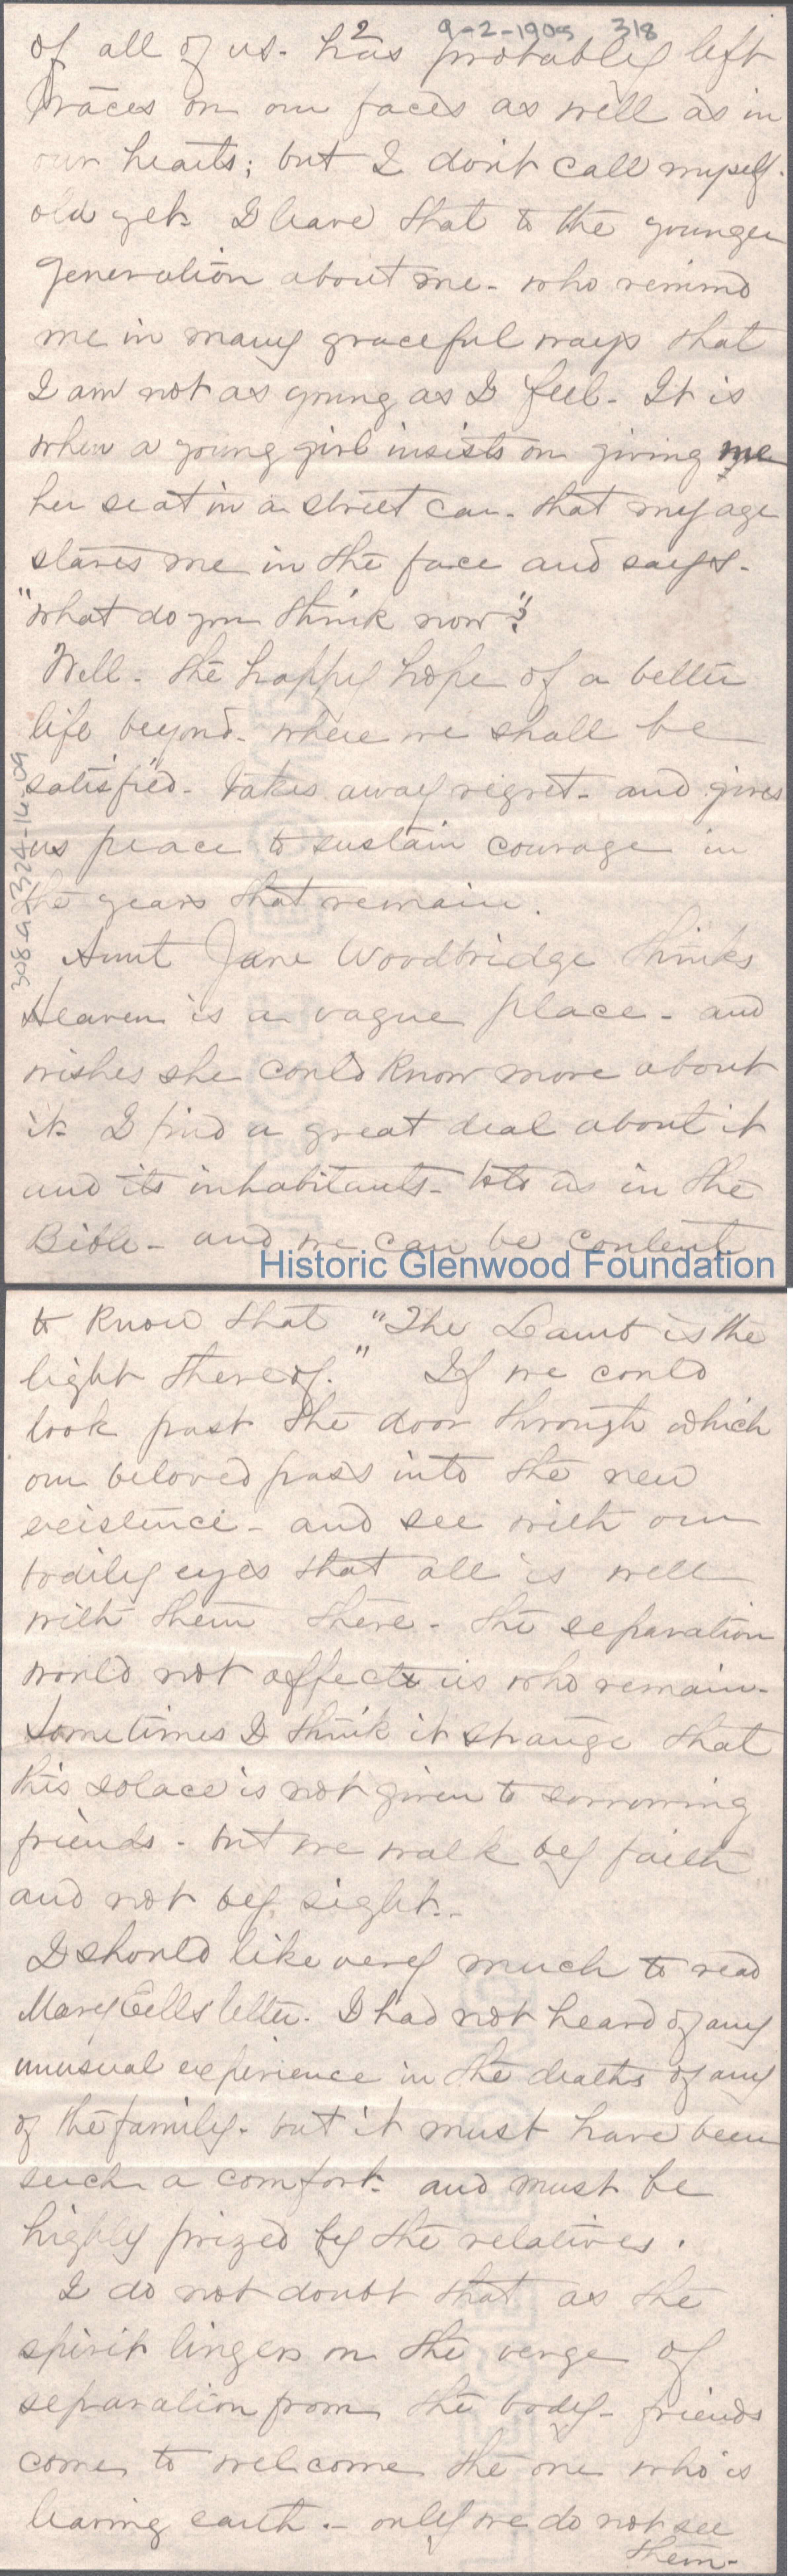 2 9-2-1905 318
of all of us- has probably left
traces on our faces as well as in
our hearts; but I don't call myself-
old yet- I leave that to the younger
generation about me- who remind
me in many graceful ways that
I am not as young as I feel- It is
when a young girl insists on giving me
her seat in a street car- that my age
stares me in the face and says-
"what do you think now"?
Well- the happy hope of a better
life beyond- where we shall be
satisfied- takes away regret- and gives
us peace to sustain courage in
the years that remain.
Aunt Jane Woodbridge thinks
Heaven is a vague place- and
wishes she could know more about
it- I find a great deal about it
and its inhabitants- as in the
Bible- and we can be content
308-a-324-14-09
Historic Glenwood Foundation
to know that "The Lamb is the
light thereof." If we could
look past the door through which
our beloved pass into the new
existence- and see with our
bodily eyes that all is well
with them there- the separation
would not affect us who remain-
Sometimes I think it strange that
this solace is not given to sorrowing
friends- but we walk by faith
and not by sight-
I should like very much to read
Mary Eells letter. I had not heard of any
unusual experience in the deaths of any
of the family- but it must have been
such a comfort- and must be
highly prized by the relatives.
I do not doubt that as the
spirit lingers on the verge of
separation from the body- friends
come to welcome the one who is
leaving earth- only we do not see
them-